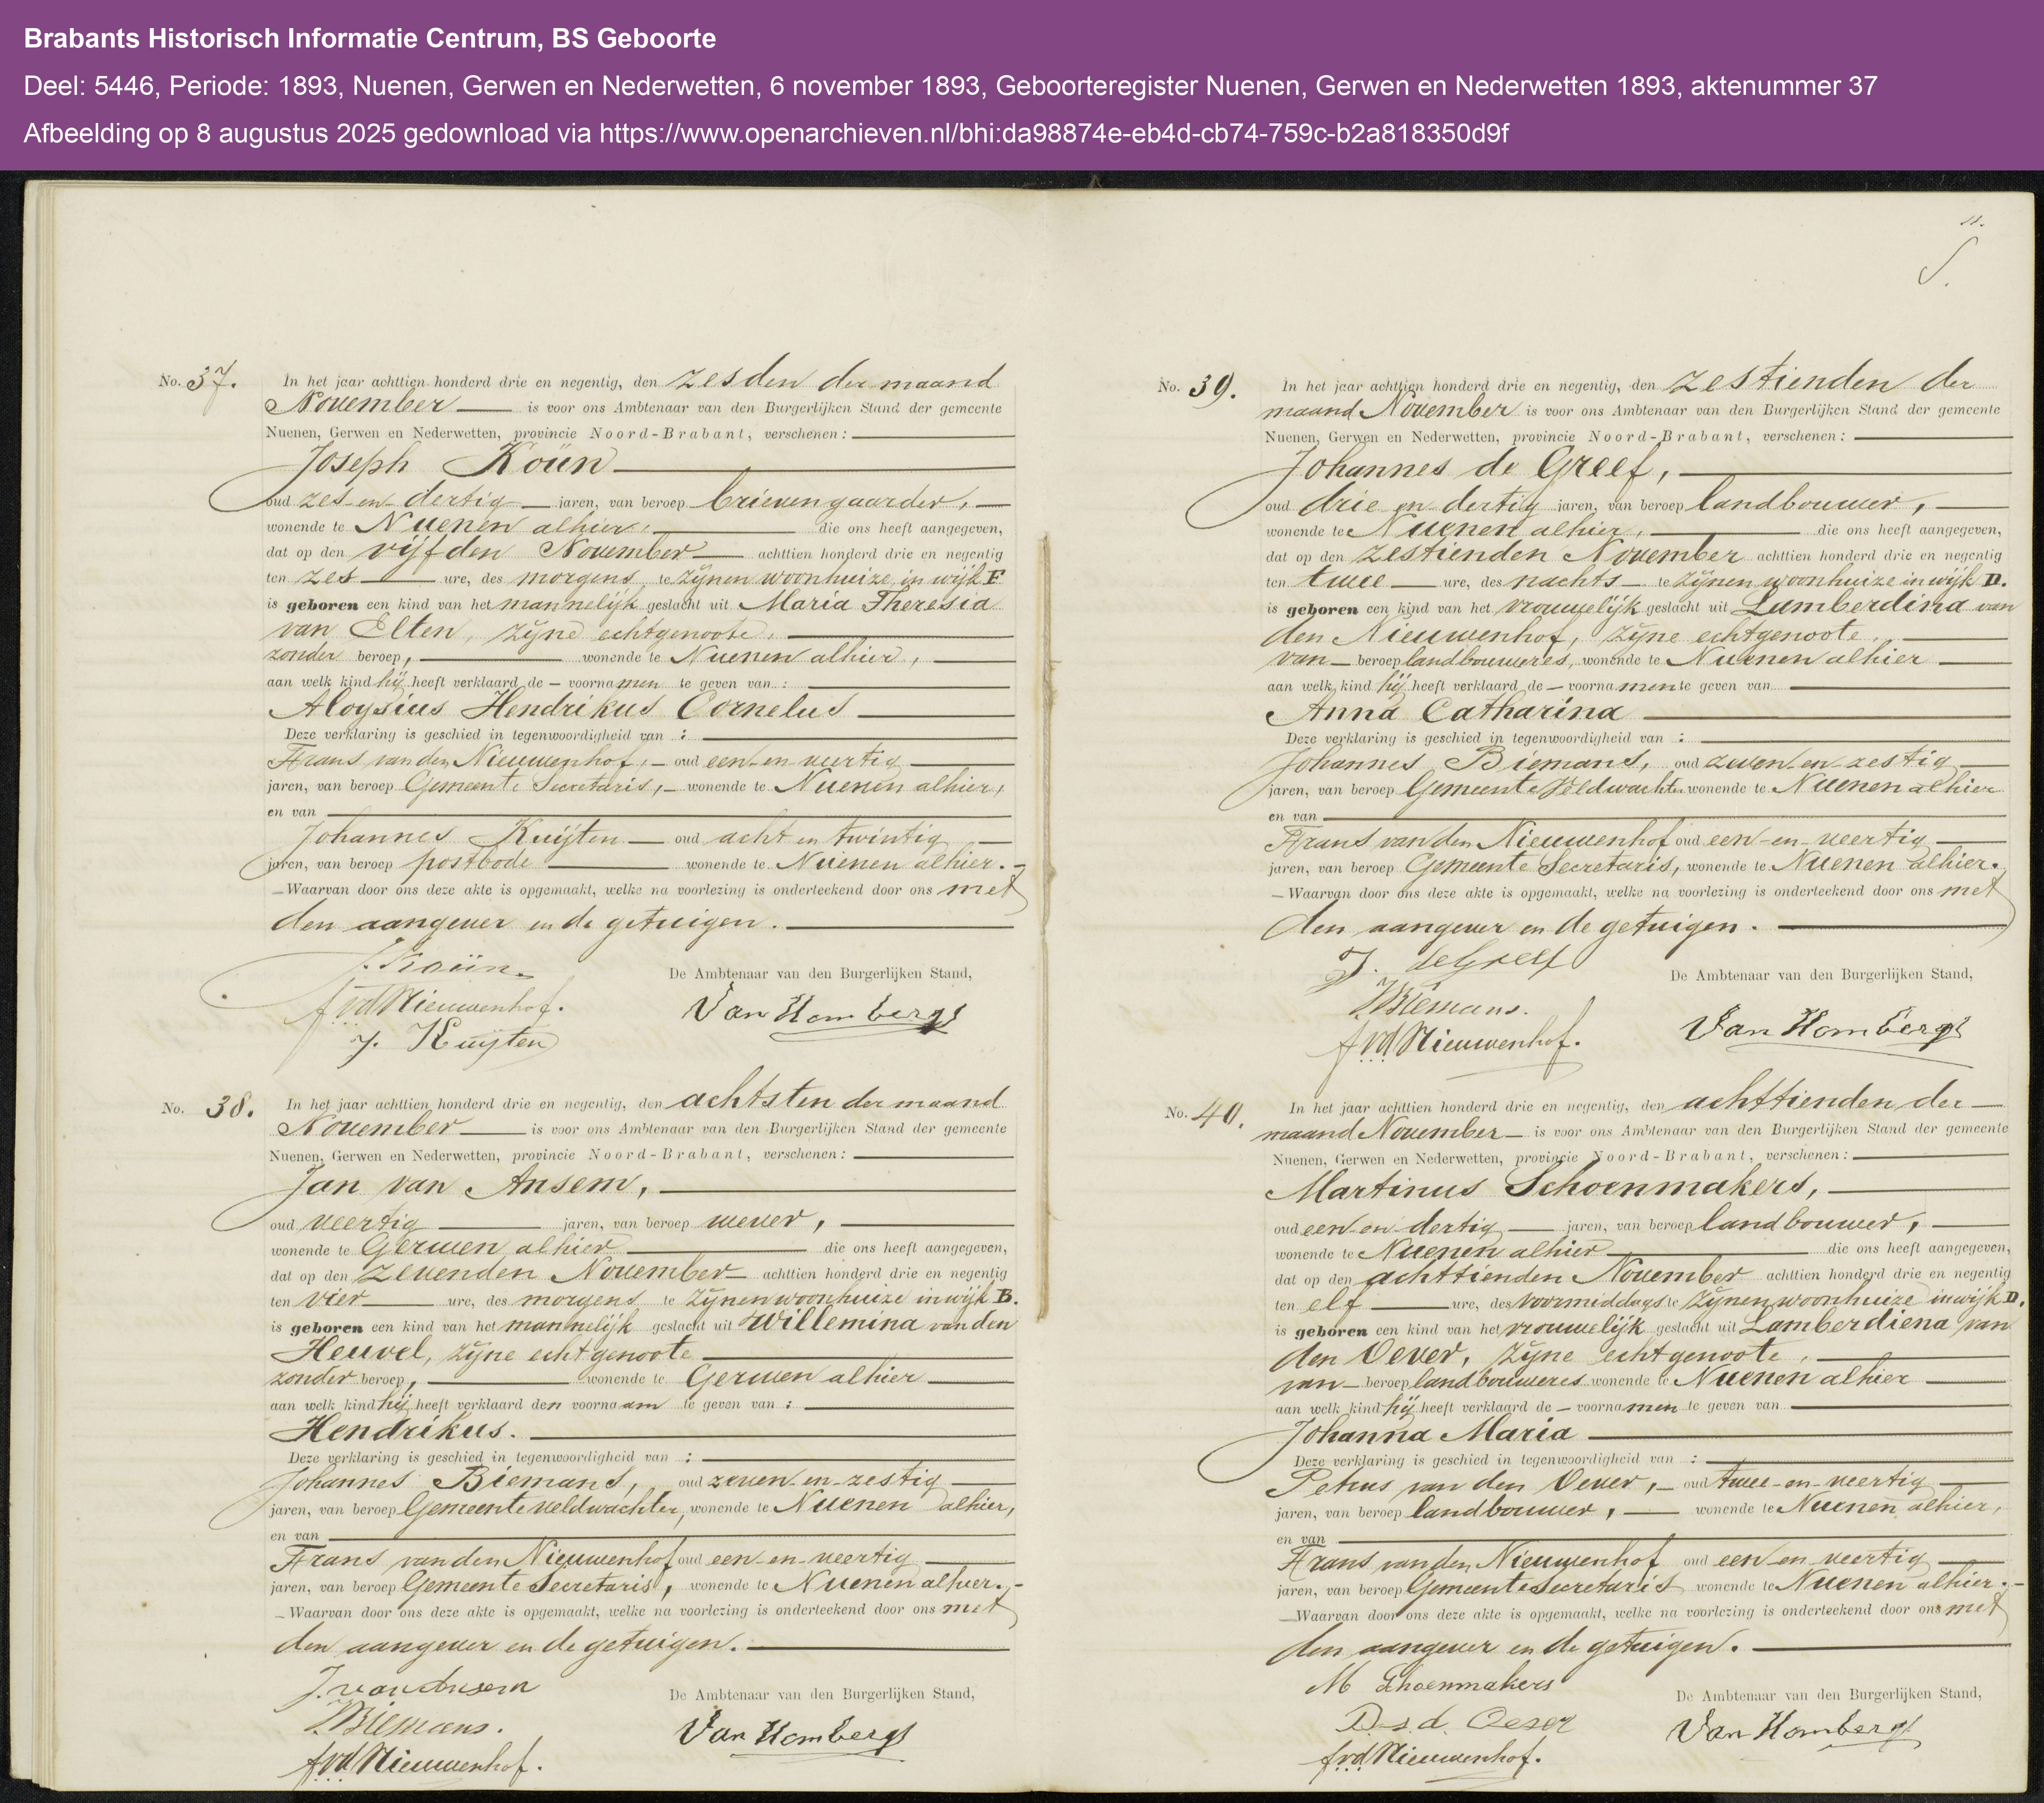 Brabants Historisch Informatie Centrum, BS Geboorte
Deel: 5446, Periode: 1893, Nuenen, Gerwen en Nederwetten, 6 november 1893, Geboorteregister Nuenen, Gerwen en Nederwetten 1893, aktenummer 37
Afbeelding op 8 augustus 2025 gedownload via https://www.openarchieven.nl/bhi:da98874e-eb4d-cb74-759c-b2a818350d9f
No. 37. In het jaar achttien honderd drie en negentig, den zesden der maand
November — is voor ons Ambtenaar van den Burgerlijken Stand der gemeente
Nuenen, Gerwen en Nederwetten, provincie Noord-Brabant, verschenen: —
Joseph Koün —
oud zes-en-dertig — jaren, van beroep brievengaarder, —
wonende te Nuenen alhier, — die ons heeft aangegeven,
dat op den vijfden November — achttien honderd drie en negentig
ten zes — ure, des morgens te zijnen woonhuize, in wijk F
is geboren een kind van het mannelijk geslacht uit Maria Theresia
van Elten, zijne echtgenoote, —
zonder beroep, — wonende te Nuenen alhier, —
aan welk kind hij heeft verklaard de — voornamen te geven van : —
Aloysius Hendrikus Cornelus —
Deze verklaring is geschied in tegenwoordigheid van : —
Frans van den Nieuwenhof, — oud een-en-veertig —
jaren, van beroep Gemeente Secretaris, — wonende te Nuenen alhier,
en van —
Johannes Kuijten — oud acht en twintig —
jaren, van beroep postbode — wonende te Nuenen alhier. -
— Waarvan door ons deze akte is opgemaakt, welke na voorlezing is onderteekend door ons met
den aangever en de getuigen. —
J. Koün.
De Ambtenaar van den Burgerlijken Stand,
f.vd Nieuwenhof.
Van Hombergh
J. Kuijten
No. 38. In het jaar achttien honderd drie en negentig, den achtsten der maand
November — is voor ons Ambtenaar van den Burgerlijken Stand der gemeente
Nuenen, Gerwen en Nederwetten, provincie Noord-Brabant, verschenen: —
Jan van Ansem, —
oud veertig — jaren, van beroep wever, —
wonende te Gerwen alhier — die ons heeft aangegeven,
dat op den zevenden November — achttien honderd drie en negentig
ten vier — ure, des morgens te zijnen woonhuize in wijk B.
is geboren een kind van het mannelijk geslacht uit Willemina van den
Heuvel, zijne echtgenoote —
zonder beroep, — wonende te Gerwen alhier —
aan welk kind hij heeft verklaard den voornaam te geven van : —
Hendrikus. —
Deze verklaring is geschied in tegenwoordigheid van : —
Johannes Biemans, oud zeven-en-zestig —
jaren, van beroep Gemeente veldwachter, wonende te Nuenen alhier,
en van —
Frans van den Nieuwenhof oud een-en-veertig —
jaren, van beroep Gemeente Secretaris, wonende te Nuenen alhier. -
— Waarvan door ons deze akte is opgemaakt, welke na voorlezing is onderteekend door ons met
den aangever en de getuigen. —
J. van Ansem
De Ambtenaar van den Burgerlijken Stand,
J Biemans.
Van Hombergh
f.vd Nieuwenhof.
11.
No. 39. In het jaar achttien honderd drie en negentig, den zestienden der
maand November is voor ons Ambtenaar van den Burgerlijken Stand der gemeente
Nuenen, Gerwen en Nederwetten, provincie Noord-Brabant, verschenen: —
Johannes de Greef, —
oud drie en dertig jaren, van beroep landbouwer, —
wonende te Nuenen alhier, — die ons heeft aangegeven,
dat op den zestienden November achttien honderd drie en negentig
ten twee — ure, des nachts — te zijnen woonhuize in wijk D.
is geboren een kind van het vrouwelijk geslacht uit Lamberdina van
den Nieuwenhof, zijne echtgenoote, —
van — beroep landbouweres, wonende te Nuenen alhier —
aan welk kind hij heeft verklaard de — voornamen te geven van —
Anna Catharina —
Deze verklaring is geschied in tegenwoordigheid van : —
Johannes Biemans, oud zeven-en-zestig —
jaren, van beroep Gemeente Veldwachter wonende te Nuenen alhier
en van —
Frans van den Nieuwenhof oud een-en-veertig —
jaren, van beroep Gemeente Secretaris, wonende te Nuenen alhier.
— Waarvan door ons deze akte is opgemaakt, welke na voorlezing is onderteekend door ons met
den aangever en de getuigen. —
J. de Greef
De Ambtenaar van den Burgerlijken Stand,
J Biemans.
Van Hombergh
f.vd Nieuwenhof.
No. 40. In het jaar achttien honderd drie en negentig, den achttienden der —
maand November — is voor ons Ambtenaar van den Burgerlijken Stand der gemeente
Nuenen, Gerwen en Nederwetten, provincie Noord-Brabant, verschenen: —
Martinus Schoenmakers, —
oud een-en-dertig — jaren, van beroep landbouwer, —
wonende te Nuenen alhier — die ons heeft aangegeven,
dat op den achttienden November achttien honderd drie en negentig
ten elf — ure, des voormiddags te zijnen woonhuize in wijk D.
is geboren een kind van het vrouwelijk geslacht uit Lamberdiena van
den Oever, zijne echtgenoote, —
van — beroep landbouweres wonende te Nuenen alhier —
aan welk kind hij heeft verklaard de — voornamen te geven van —
Johanna Maria —
Deze verklaring is geschied in tegenwoordigheid van : —
Petrus van den Oever, — oud twee-en-veertig —
jaren, van beroep landbouwer, — wonende te Nuenen alhier,
en van —
Frans van den Nieuwenhof oud een en veertig —
jaren, van beroep Gemeentesecretaris wonende te Nuenen alhier. -
— Waarvan door ons deze akte is opgemaakt, welke na voorlezing is onderteekend door ons met
den aangever en de getuigen. —
M Schoenmakers
De Ambtenaar van den Burgerlijken Stand,
Van Hombergh
f.vd Nieuwenhof.